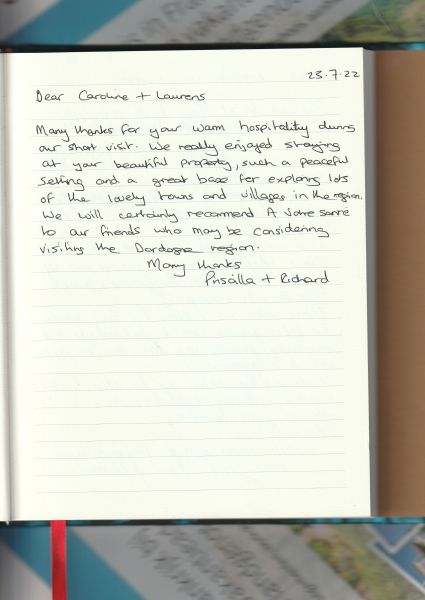 23.7.22
Dear Caroline + Laurens
Many thanks for your warm hospitality during
our short visit. We really enjoyed staying
at your beautiful property, such a peaceful
setting and a great base for exploring lots
of the lovely towns and villages in the region.
We will certainly recommend A Votre Santé
to our friends who may be considering
visiting the Dordogne region.
Many thanks
Priscilla + Richard